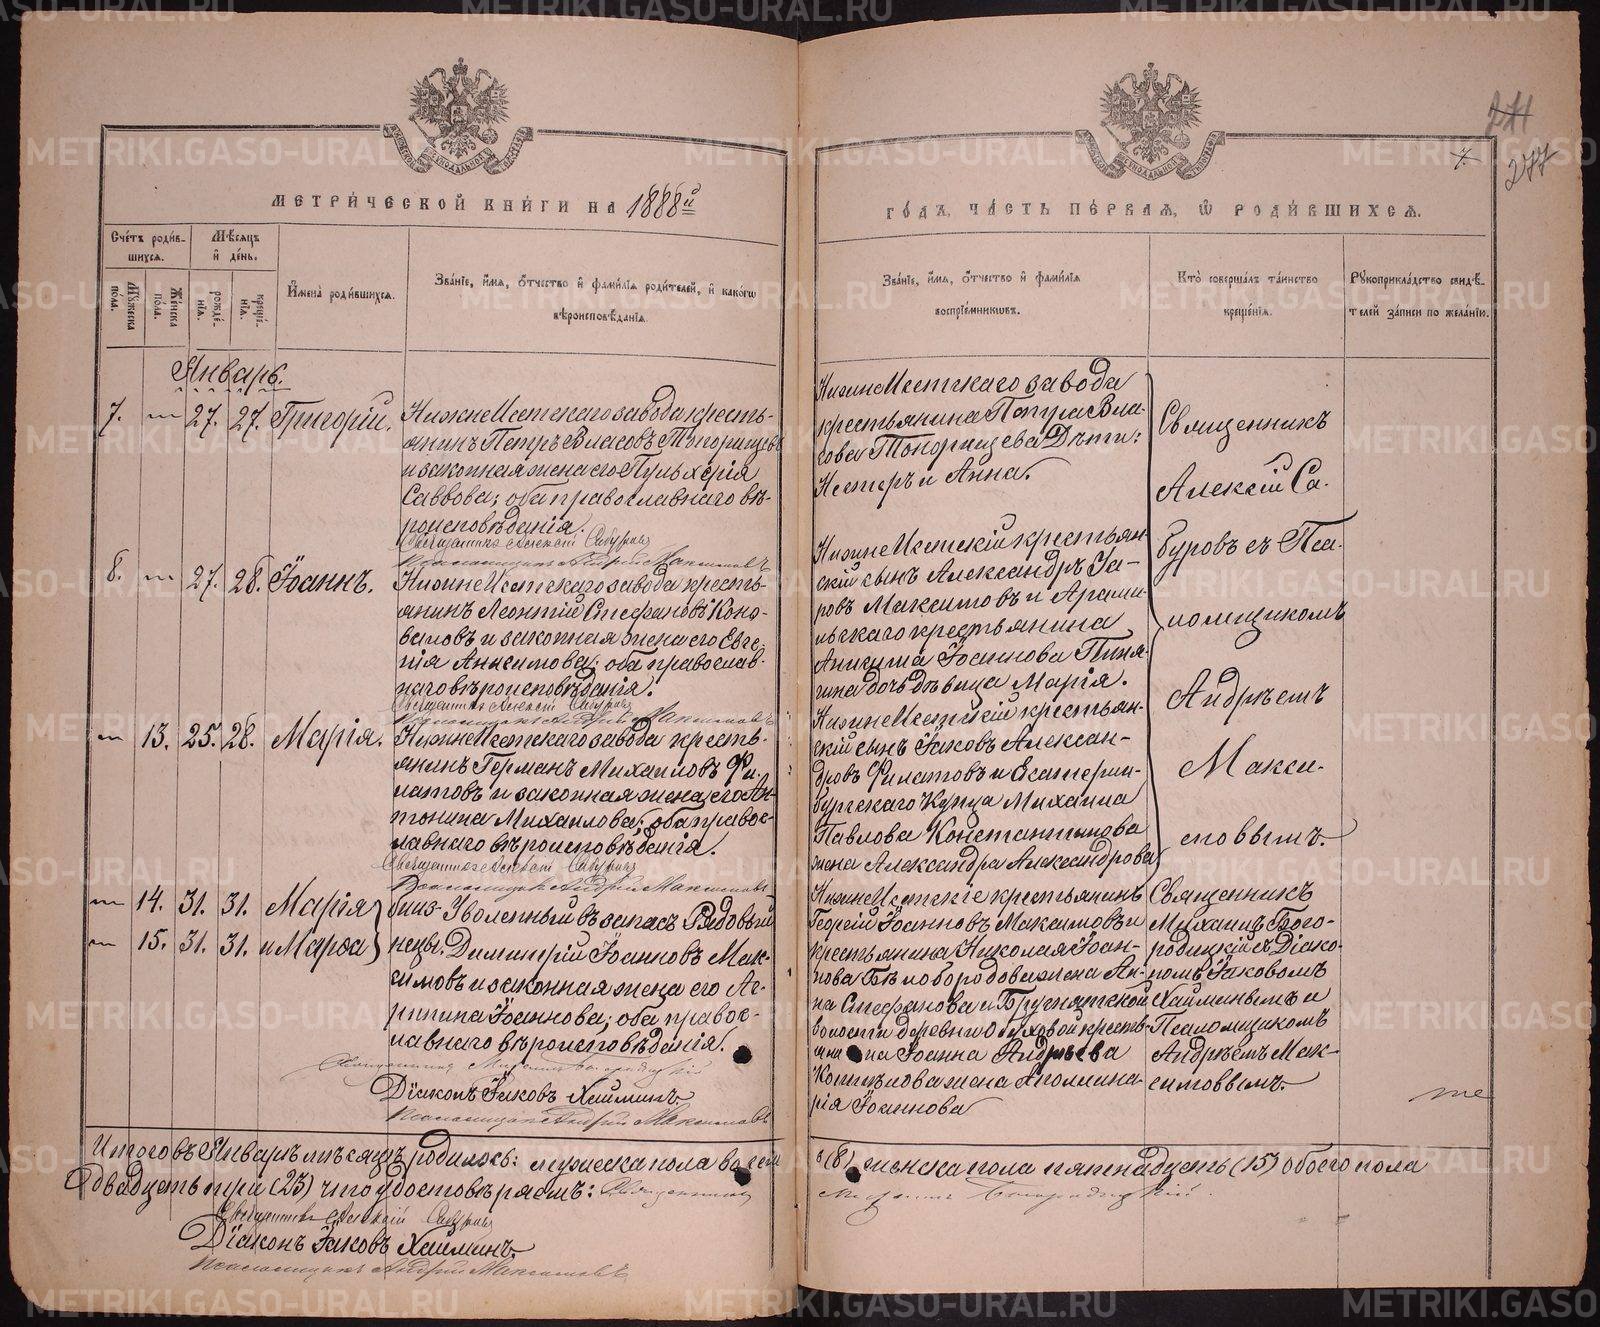 METRIKI.GASO-URAL.RU
МЕТРИЧЕСКОЙ КНИГИ НА 1888й
ГОДЪ, ЧАСТЬ ПЕРВАЯ, Ѡ РОДИВШИХСЯ.
277
Счетъ родив-
шихся.
Мѣсяцъ
и день.
Мужеска
пола.
Женска
пола.
рожде-
нія.
креще-
нія.
Имена родившихся.
Званіе, имя, отчество и фамилія родителей, и какогѡ
вѣроисповѣданія.
Званіе, имя, отчество и фамилія
воспріемниковъ.
Кто совершалъ таинство
крещенія.
Рукоприкладство свидѣ-
телей записи по желанію.
Январь.
7. 27. 27. Григорій.
Нижне Исетскаго завода кресть-
янинъ Петръ Власовъ Топорищевъ
и законная жена его Пульхерія
Саввова; оба православнаго вѣ-
роисповѣданія.
Священникъ Алексій Сабуровъ
Псаломщикъ Андрей Максимовъ
Нижне Исетскаго завода
крестьянина Петра Вла-
сова Топорищева Дѣти:
Нестеръ и Анна.
8. 27. 28. Іоаннъ.
Нижне Исетскаго завода кресть-
янинъ Леонтій Стефановъ Коно-
валовъ и законная жена его Евге-
нія Анисимова; оба православ-
наго вѣроисповѣданія.
Священникъ Алексій Сабуровъ
Псаломщикъ Андрей Максимовъ
Нижне Исетскій крестьян-
скій сынъ Александръ Ува-
ровъ Максимовъ и Арами-
льскаго крестьянина
Аникита Іоаннова Пиня-
гина дочь дѣвица Марія.
13. 25. 28. Марія.
Нижне Исетскаго завода кресть-
янинъ Германъ Михаиловъ Фи-
латовъ и законная жена его Ан-
тонина Михаилова; оба правос-
лавнаго вѣроисповѣданія.
Священникъ Алексій Сабуровъ
Псаломщикъ Андрей Максимовъ
Нижне Исетскій крестьян-
скій сынъ Іаковъ Алексан-
дровъ Филатовъ и Екатерин-
бургскаго Купца Михаила
Павлова Константинова
жена Александра Александрова
Священникъ
Алексій Са-
буровъ съ Пса-
ломщикомъ
Андреемъ
Макси-
мовымъ.
14. 31. 31. Марія
15. 31. 31. и Марѳа
близ-
нецы.
Уволенный въ запасъ Рядовый
Димитрій Іоанновъ Мак-
симовъ и законная жена его Аг-
рипина Іоаннова; оба правос-
лавнаго вѣроисповѣданія.
Священникъ Михаилъ Богородицкій
Діаконъ Іаковъ Хайминъ.
Псаломщикъ Андрей Максимовъ
Нижне Исетскіе крестьянинъ
Георгій Іоанновъ Максимовъ и
крестьянина Николая Іоан-
нова Бѣлобородова жена Ан-
на Стефанова и Бруснятской
волости деревни
на Іоанна Андреева
жена Аполлина-
рія Іоаннова
Священникъ
Михаилъ Бого-
родицкій съ Діако-
номъ Іаковомъ
Хайминымъ и
Псаломщикомъ
Андреемъ Мак-
симовымъ.
Итого въ Январѣ мѣсяцѣ родилось: мужеска пола восемь (8) женска пола пятнадцать (15) обоего пола
двадцать три (23) что удостовѣряемъ: Священникъ Михаилъ Богородицкій.
Священникъ Алексій Сабуровъ
Діаконъ Іаковъ Хайминъ.
Псаломщикъ Андрей Максимовъ